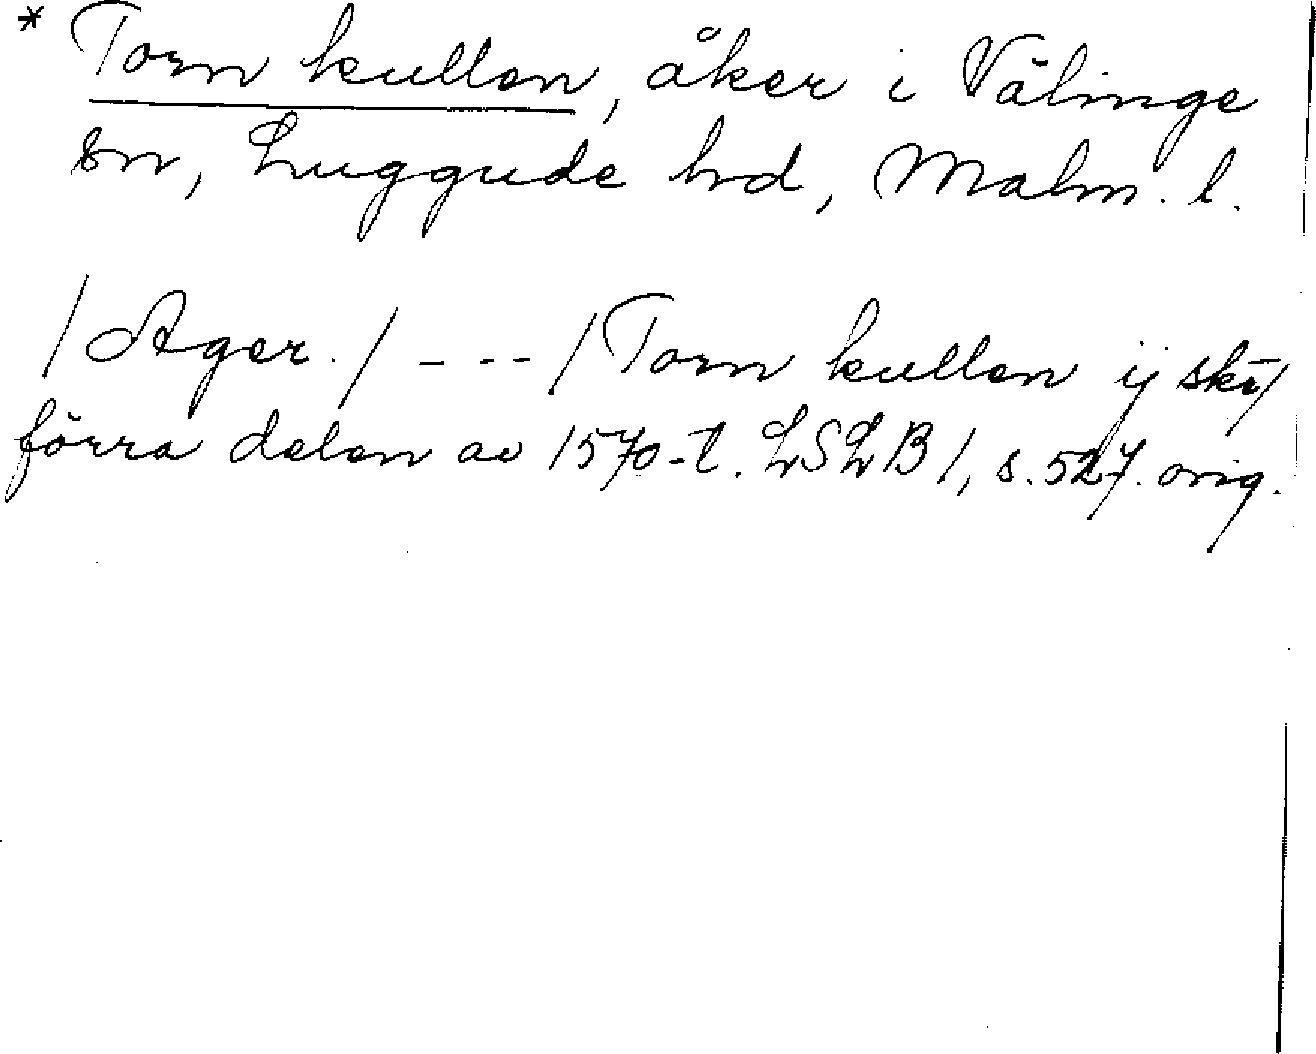 * Torn kullen, åker i Välinge
sn, Luggude hd, Malm. l.
/Ager./ - - - /Torn kullen ij skä/
förra delen av 1570-t. LSLB 1, s. 527. orig.